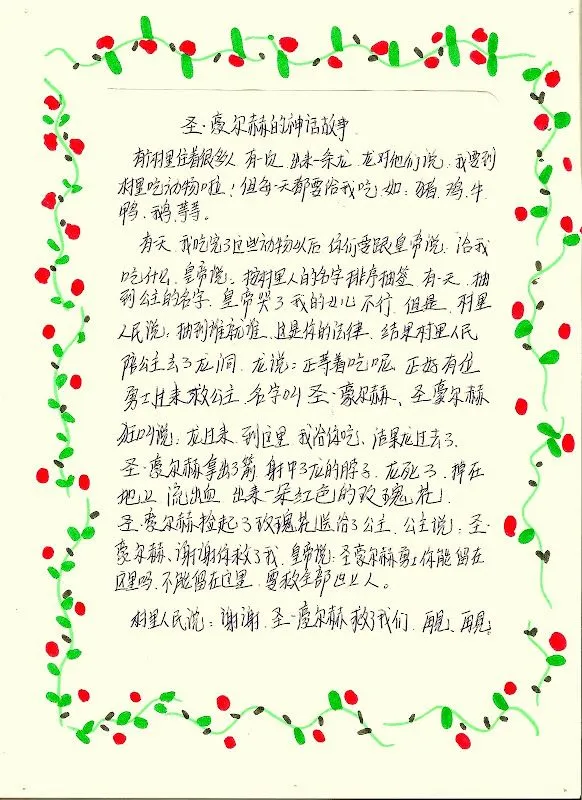 圣·豪尔赫的神话故事.
有村里住着很多人 有一次 出来一条龙 龙对他们说 我要到
村里吃动物啦！但每一天都要给我吃 如：猪.鸡.牛
鸭.鹅等等。
有天 我吃完了这些动物以后 你们要跟皇帝说：给我
吃什么.皇帝说：按村里人的名字排序抽签 有一天.抽
到公主的名字.皇帝哭了 我的女儿不行.但是.村里
人民说：抽到谁就谁.这是你的法律.结果村里人民
陪公主去了龙洞.龙说：正等着吃呢 正好有位
勇士过来救公主.名字叫圣·豪尔赫、圣豪尔赫
狂叫说：龙过来.到这里 我给你吃、结果龙过去了.
圣·豪尔赫拿出了箭 射中了龙的脖子.龙死了.掉在
地上 流出血 出来一朵红色的玫瑰花！
圣·豪尔赫捡起了玫瑰花送给了公主.公主说：圣·
豪尔赫、谢谢你救了我.皇帝说：圣豪尔赫勇士你能留在
这里吗.不能留在这里.要救全部世上人。
村里人民说：谢谢.圣·豪尔赫 救了我们.再见.再见.